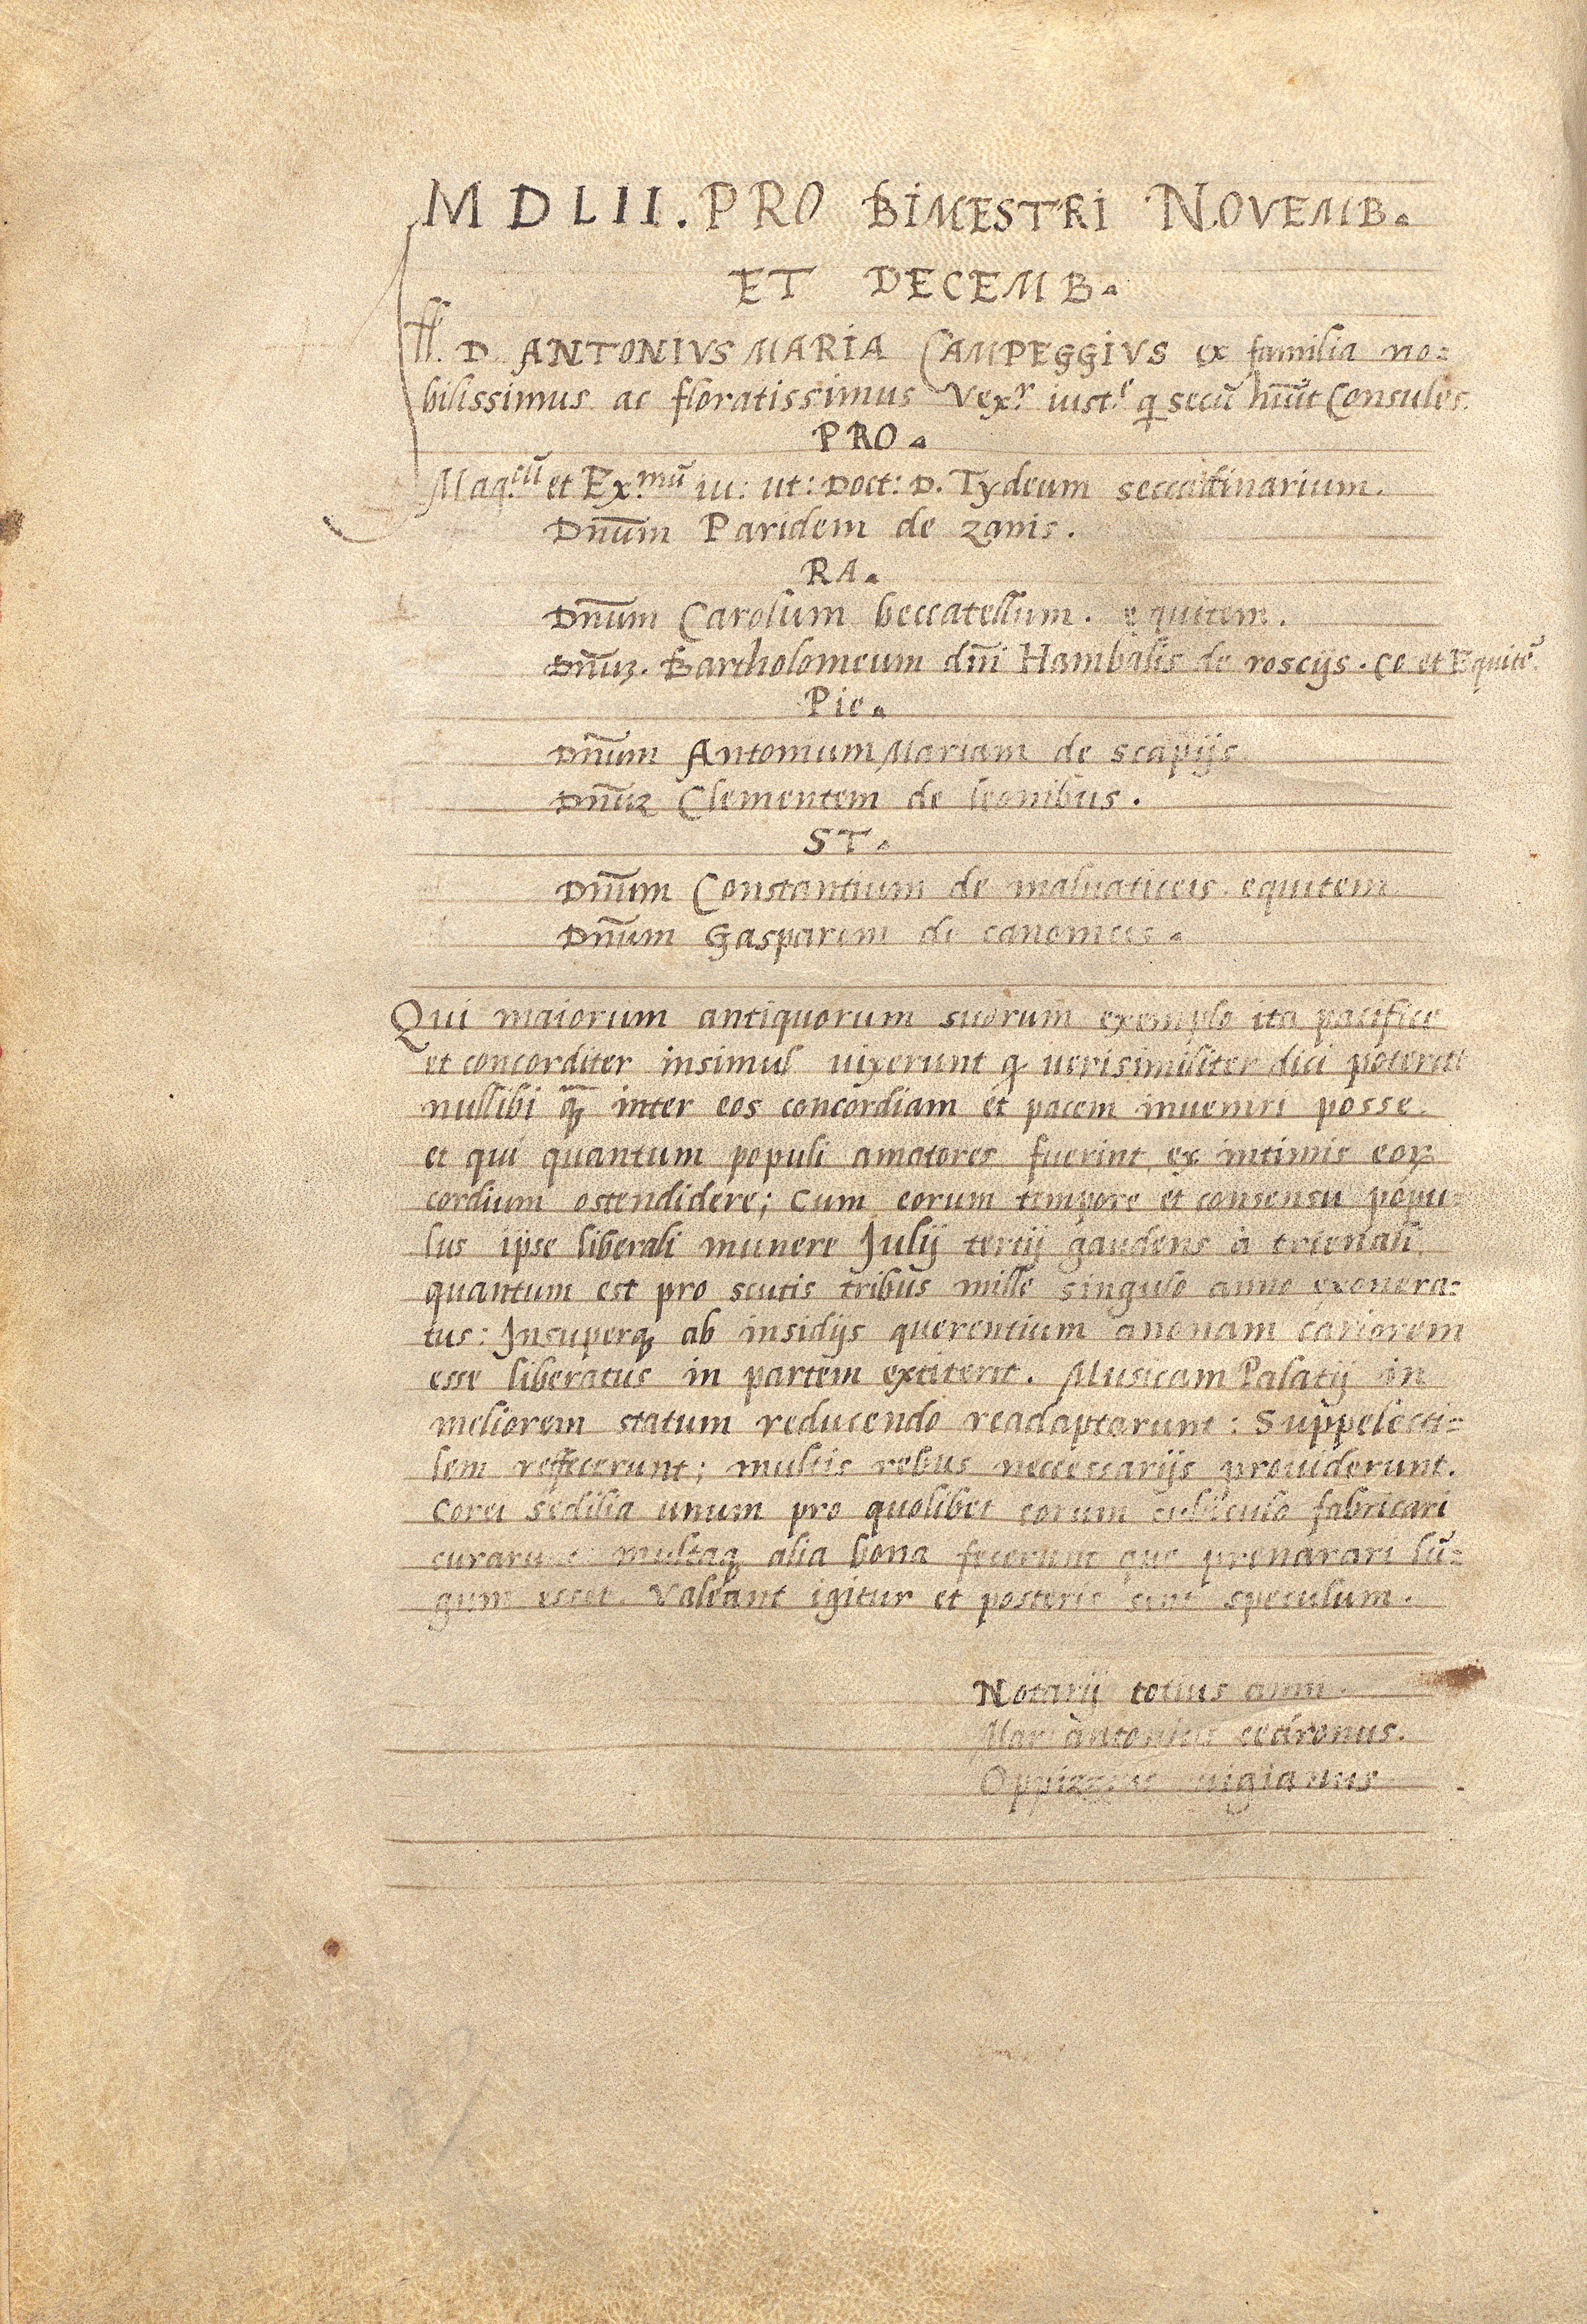 MDLII. PRO BIMESTRI NOVEMB.
ET DECEMB.
Ill. D. ANTONIVS MARIA CAMPEGGIVS ex familia no=
bilissimus ac floratissimus Vex.r iust.e q secū hūūt Consules.
PRO.
Mag.cū et Ex.mū iu: ut: Doct: D. Tydeum seccadinarium.
Dn̄um Paridem de zanis.
RA.
Dn̄um Carolum beccatellum. equitem.
Dn̄uʒ. Bartholomeum dn̄i Hanibalis de roscijs. Co et Equitē.
Pie.
Dn̄um Antonium Mariam de scapijs
Dn̄uʒ Clementem de leonibus.
ST.
Dn̄um Constantium de maluaticeis equitem
Dn̄um Gasparem de canonicis.
Qui maiorum antiquorum suorum exemplo ita pacifice
et concorditer insimul uixerunt q uerisimiliter dici poterit
nullibi qꝫ inter eos concordiam et pacem inueniri posse.
et qui quantum populi amatores fuerint ex intimis eoꝝ
cordium ostendidere; Cum eorum tempore et consensu popu=
lus ipse liberali munere Julij tertij gaudens à trienali
quantum est pro scutis tribus mille singulo anno exonera=
tus: Insuperqꝫ ab insidijs querentium anonam cariorem
esse liberatus in partem extiterit. Musicam Palatij in
meliorem statum reducendo readaptarunt: Suppelecti=
lem reffecerunt; multis rebus necessarijs prouiderunt.
Corei sedilia unum pro quolibet eorum cubiculo fabricari
curarunt multaqꝫ alia bona fecerunt que prenarari lū=
gum esset. Valeant igitur et posteris sint speculum.
Notarij totius anni.
Mar antonius cedronus.
Oppizzus uigianus